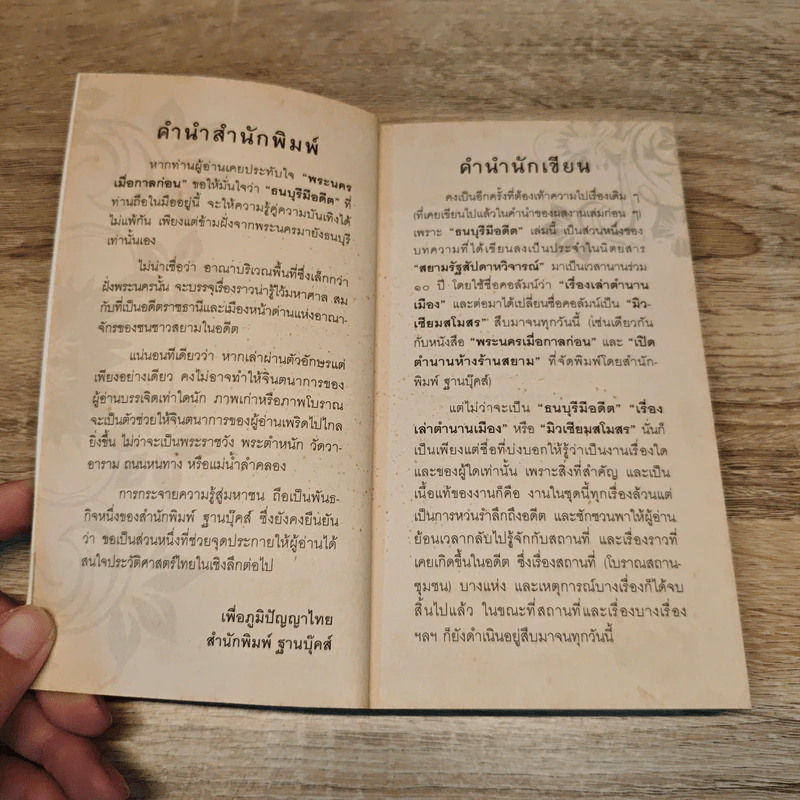 คำนำสำนักพิมพ์
หากท่านผู้อ่านเคยประทับใจ "พระนคร
เมื่อกาลก่อน" ขอให้มั่นใจว่า "ธนบุรีมีอดีต" ที่
ท่านถือในมืออยู่นี้ จะให้ความรู้คู่ความบันเทิงได้
ไม่แพ้กัน เพียงแต่ข้ามฝั่งจากพระนครมายังธนบุรี
เท่านั้นเอง
ไม่น่าเชื่อว่า อาณาบริเวณพื้นที่ซึ่งเล็กกว่า
ฝั่งพระนครนั้น จะบรรจุเรื่องราวน่ารู้ไว้มหาศาล สม
กับที่เป็นอดีตราชธานีและเมืองหน้าด่านแห่งอาณา-
จักรของชนชาวสยามในอดีต
แน่นอนทีเดียวว่า หากเล่าผ่านตัวอักษรแต่
เพียงอย่างเดียว คงไม่อาจทำให้จินตนาการของ
ผู้อ่านบรรเจิดเท่าใดนัก ภาพเก่าหรือภาพโบราณ
จะเป็นตัวช่วยให้จินตนาการของผู้อ่านเพริดไปไกล
ยิ่งขึ้น ไม่ว่าจะเป็นพระราชวัง พระตำหนัก วัดวา-
อาราม ถนนหนทาง หรือแม่น้ำลำคลอง
การกระจายความรู้สู่มหาชน ถือเป็นพันธ-
กิจหนึ่งของสำนักพิมพ์ ฐานบุ๊คส์ ซึ่งยังคงยืนยัน
ว่า ขอเป็นส่วนหนึ่งที่ช่วยจุดประกายให้ผู้อ่านได้
สนใจประวัติศาสตร์ไทยในเชิงลึกต่อไป
เพื่อภูมิปัญญาไทย
สำนักพิมพ์ ฐานบุ๊คส์
คำนำนักเขียน
คงเป็นอีกครั้งที่ต้องเท้าความไปเรื่องเดิม ๆ
(ที่เคยเขียนไปแล้วในคำนำของผลงานเล่มก่อน ๆ)
เพราะ "ธนบุรีมีอดีต" เล่มนี้ เป็นส่วนหนึ่งของ
บทความที่ได้เขียนลงเป็นประจำในนิตยสาร
"สยามรัฐสัปดาหวิจารณ์" มาเป็นเวลานานร่วม
๑๐ ปี โดยใช้ชื่อคอลัมน์ว่า "เรื่องเล่าตำนาน
เมือง" และต่อมาได้เปลี่ยนชื่อคอลัมน์เป็น "มิว-
เซียมสโมสร" สืบมาจนทุกวันนี้ (เช่นเดียวกัน
กับหนังสือ "พระนครเมื่อกาลก่อน" และ "เปิด
ตำนานห้างร้านสยาม" ที่จัดพิมพ์โดยสำนัก-
พิมพ์ ฐานบุ๊คส์)
แต่ไม่ว่าจะเป็น "ธนบุรีมีอดีต" "เรื่อง
เล่าตำนานเมือง" หรือ "มิวเซียมสโมสร" นั่นก็
เป็นเพียงแต่ชื่อที่บ่งบอกให้รู้ว่าเป็นงานเรื่องใด
และของผู้ใดเท่านั้น เพราะสิ่งที่สำคัญ และเป็น
เนื้อแท้ของงานก็คือ งานในชุดนี้ทุกเรื่องล้วนแต่
เป็นการหวนรำลึกถึงอดีต และชักชวนพาให้ผู้อ่าน
ย้อนเวลากลับไปรู้จักกับสถานที่ และเรื่องราวที่
เคยเกิดขึ้นในอดีต ซึ่งเรื่องสถานที่ (โบราณสถาน-
ชุมชน) บางแห่ง และเหตุการณ์บางเรื่องก็ได้จบ
สิ้นไปแล้ว ในขณะที่สถานที่และเรื่องบางเรื่อง
ฯลฯ ก็ยังดำเนินอยู่สืบมาจนทุกวันนี้